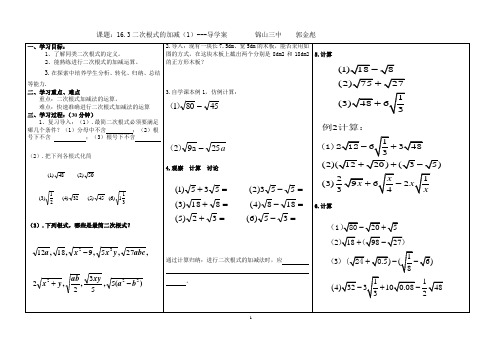 课题:16.3二次根式的加减(1)---导学案 锦山三中 郭金彪
一、学习目标:
1、了解同类二次根式的定义。
2、能熟练进行二次根式的加减运算。
3.在探索中培养学生分析、转化、归纳、总结等能力.
二、学习重点、难点
重点:二次根式加减法的运算。
难点:快速准确进行二次根式加减法的运算
三、学习过程:(30分钟)
1.复习导入:(1).简二次根式必须要满足哪几个条件?(1)分母中不含 ;(2)根号下不含 ,(3)根号下不含
(2).把下列各根式化简
(1) √48 (2) √50
(4) √32 (5) √45
(3).下列根式,哪些是最简二次根式?
√12a, √18, √(x²-9), √(5x³y), √27abc,
2√(x²+y), √(ab/2), 3√xy/5, √(5(a²-b²))
2.导入:现有一块长7.5dm、宽5dm的木板,能否采用如图的方式,在这块木板上截出两个分别是8dm2和18dm2的正方形木板?
3.自学课本例1,仿例计算:
(1) √80 - √45
(2) √9a - √25a
4.观察 计算 讨论
(1)√5+3√5= (2)3√5-√5=
(3)√18+√8= (4)√8-√18=
(5)√2+√3= (6)√5-√3=
通过计算归纳:进行二次根式的加减法时,应
。
5.计算
(1)√18-√8
(2)√75+√27
(3)√48+6√(1/3)
例2计算:
(1)2√12-6√(1/3)+3√48
(2)(√12+√20)+(√3-√5)
(3)2/3√9x+6√(x/4)-2x√(1/x)
6.计算
(1)√80-√20+√5
(2)√18+(√98-√27)
(3)(√24+√0.5)-(√(1/8)-√6)